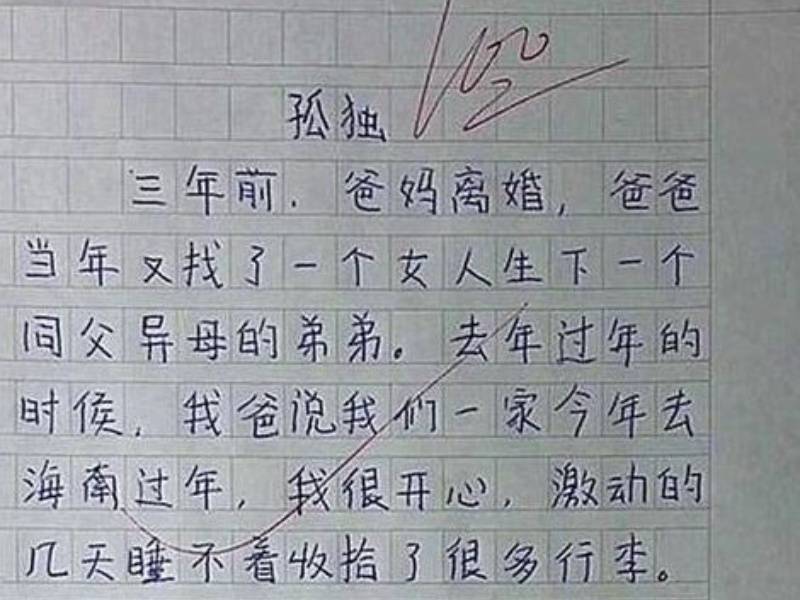 100
孤独
三年前.爸妈离婚,爸爸
当年又找了一个女人生下一个
同父异母的弟弟。去年过年的
时侯,我爸说我们一家今年去
海南过年,我很开心,激动的
几天睡不着收拾了很多行李。